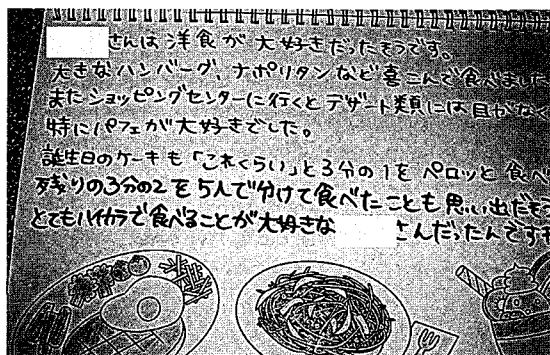 さんは洋食が大好きだったそうです。
大きなハンバーグ、ナポリタンなど喜こんで食べました
またショッピングセンターに行くとデザート類には目がなく
特にパフェが大好きでした。
誕生日のケーキも「これくらい」と3分の1をペロッと食べ
残りの3分の2を5人で分けて食べたことも思い出だそう
とてもハイカラで食べることが大好きな さんだったんですね